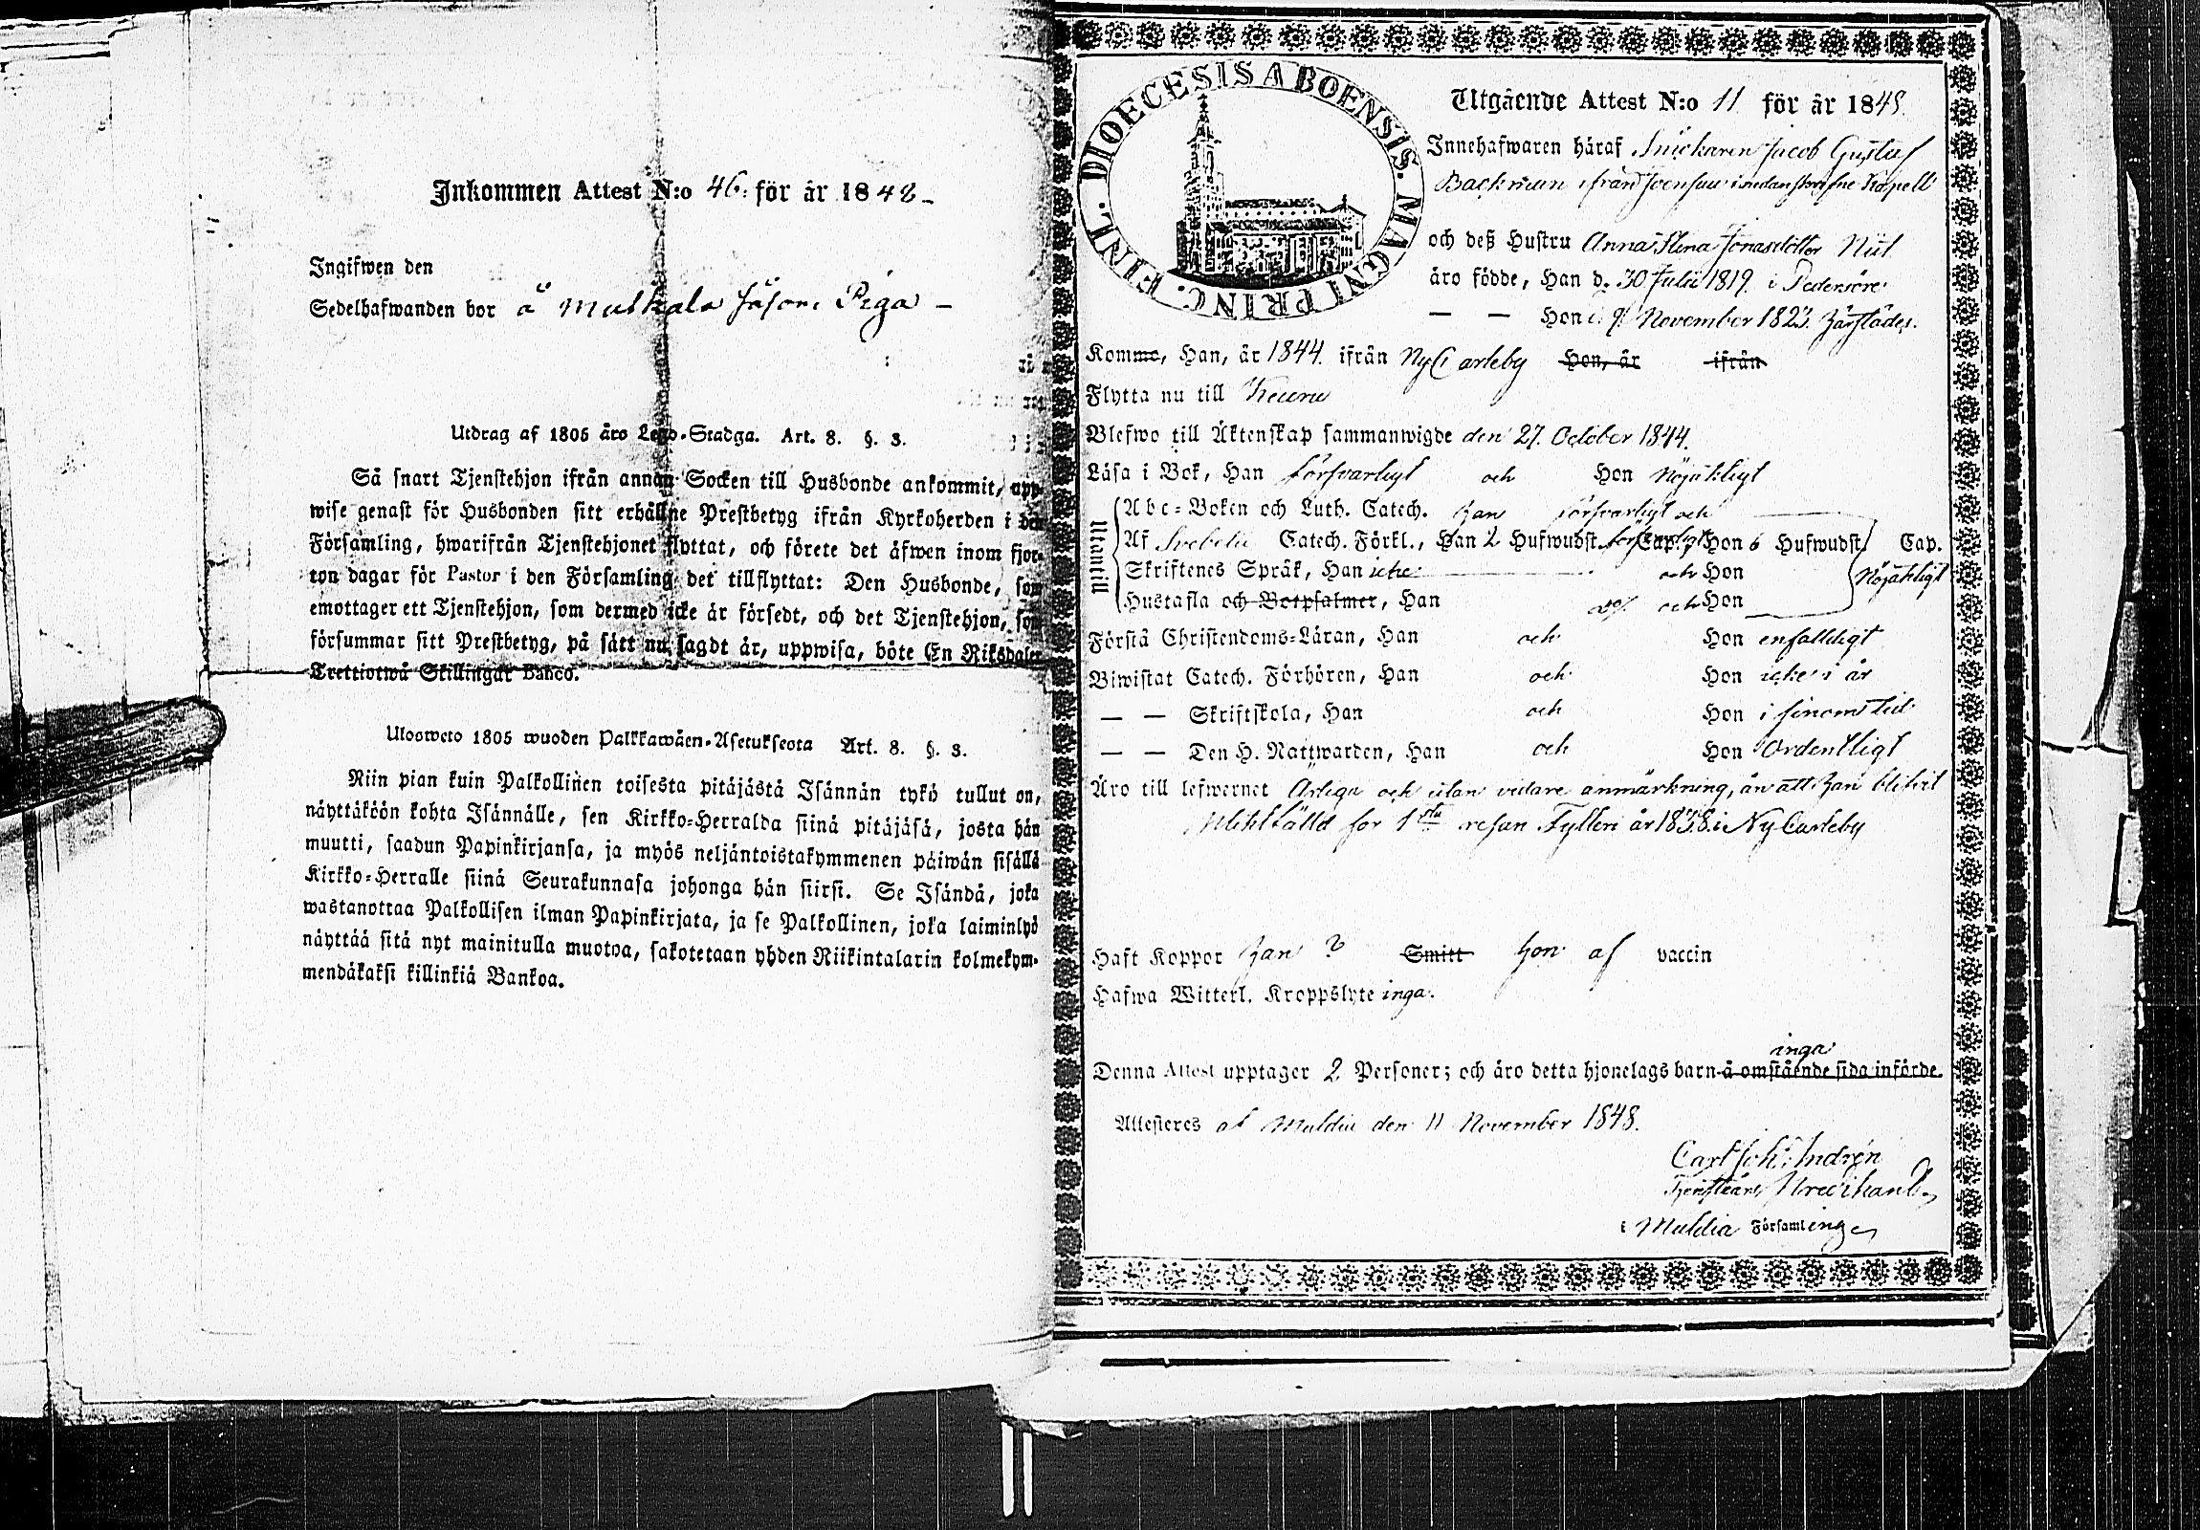 Inkommen Attest N:o 46. för år 1848
Ingifwen den
Sedelhafwanden bor å Mutkala Piga
Utdrag af 1805 års Lego-Stadga. Art. 8. §. 3.
Så snart Tjenstehjon ifrån annan Socken till Husbonde ankommit, upp-
wise genast för Husbonden sitt erhållne Prestbetyg ifrån Kyrkoherden i den
Församling, hwarifrån Tjenstehjonet flyttat, och förete det äfwen inom fjor-
ton dagar för Pastor i den Församling det tillflyttat: Den Husbonde, som
emottager ett Tjenstehjon, som dermed icke är försedt, och det Tjenstehjon, som
försummar sitt Prestbetyg, på sätt nu sagdt är, uppwisa, böte En Riksdaler
Trettiotwå Skillingar Banco.
Ulosweto 1805 wuoden Palkkawäen-Asetuksesta Art. 8. §. 3.
Niin pian kuin Palkollinen toisesta pitäjästä Isännän tykö tullut on,
näyttäköön kohta Isännälle, sen Kirkko-Herralda siinä pitäjäsä, josta hän
muutti, saadun Papinkirjansa, ja myös neljäntoistakymmenen päiwän sisällä
Kirkko-Herralle siinä Seurakunnasa johonga hän siirsi. Se Isändä, joka
wastanottaa Palkollisen ilman Papinkirjata, ja se Palkollinen, joka laiminlyö
näyttää sitä nyt mainitulla muotoa, sakotetaan yhden Riikintalarin kolmekym-
mendäkaksi killinkiä Bankoa.
DIOECESIS ABOENSIS. MAGNI PRINC. FINL.
Utgående Attest N:o 11 för år 1848.
Innehafwaren häraf Snickaren Jacob Gustaf
Backman ifrån Joensuu i Kapell
och deß Hustru Anna Stena Jonasdotter
äro födde, Han d. 30 Julii 1819. i Pedersöre
— — Hon d. 9 November 1823. härstädes.
Komme, Han, år 1844. ifrån NyCarleby Hon, år ifrån
Flytta nu till Keuru
Blefwo till Äktenskap sammanwigde den 27. October 1844.
Läsa i Bok, Han försvarligt och Hon Nöjaktligt
Utantill
Abc-Boken och Luth. Catech. Han försvarligt och
Af Svebelii Catech. Förkl., Han 2 Hufwudst. Cap., Hon 6 Hufwudst. Cap.
Skriftenes Språk, Han icke och Hon Nöjaktligt
Hustafla och Botpsalmer, Han och Hon
Förstå Christendoms-Läran, Han och Hon enfaldigt
Biwistat Catech. Förhören, Han och Hon icke i år
— — Skriftskola, Han och Hon i sinom tid
— — Den H. Nattwarden, Han och Hon Ordentligt
Äro till lefwernet Ärliga och utan vidare anmärkning, än att han blifvit
sakfälld för 1sta resan Fylleri år 1838 i NyCarleby
Haft Koppor Han ? Smitt Hon af vaccin
Hafwa Witterl. Kroppslyte inga.
inga
Denna Attest upptager 2 Personer; och äro detta hjonelags barn å omstående sida införde.
Attesteras af Muldia den 11 November 1848.
Carl Joh: Indrén
i Muldia Församling